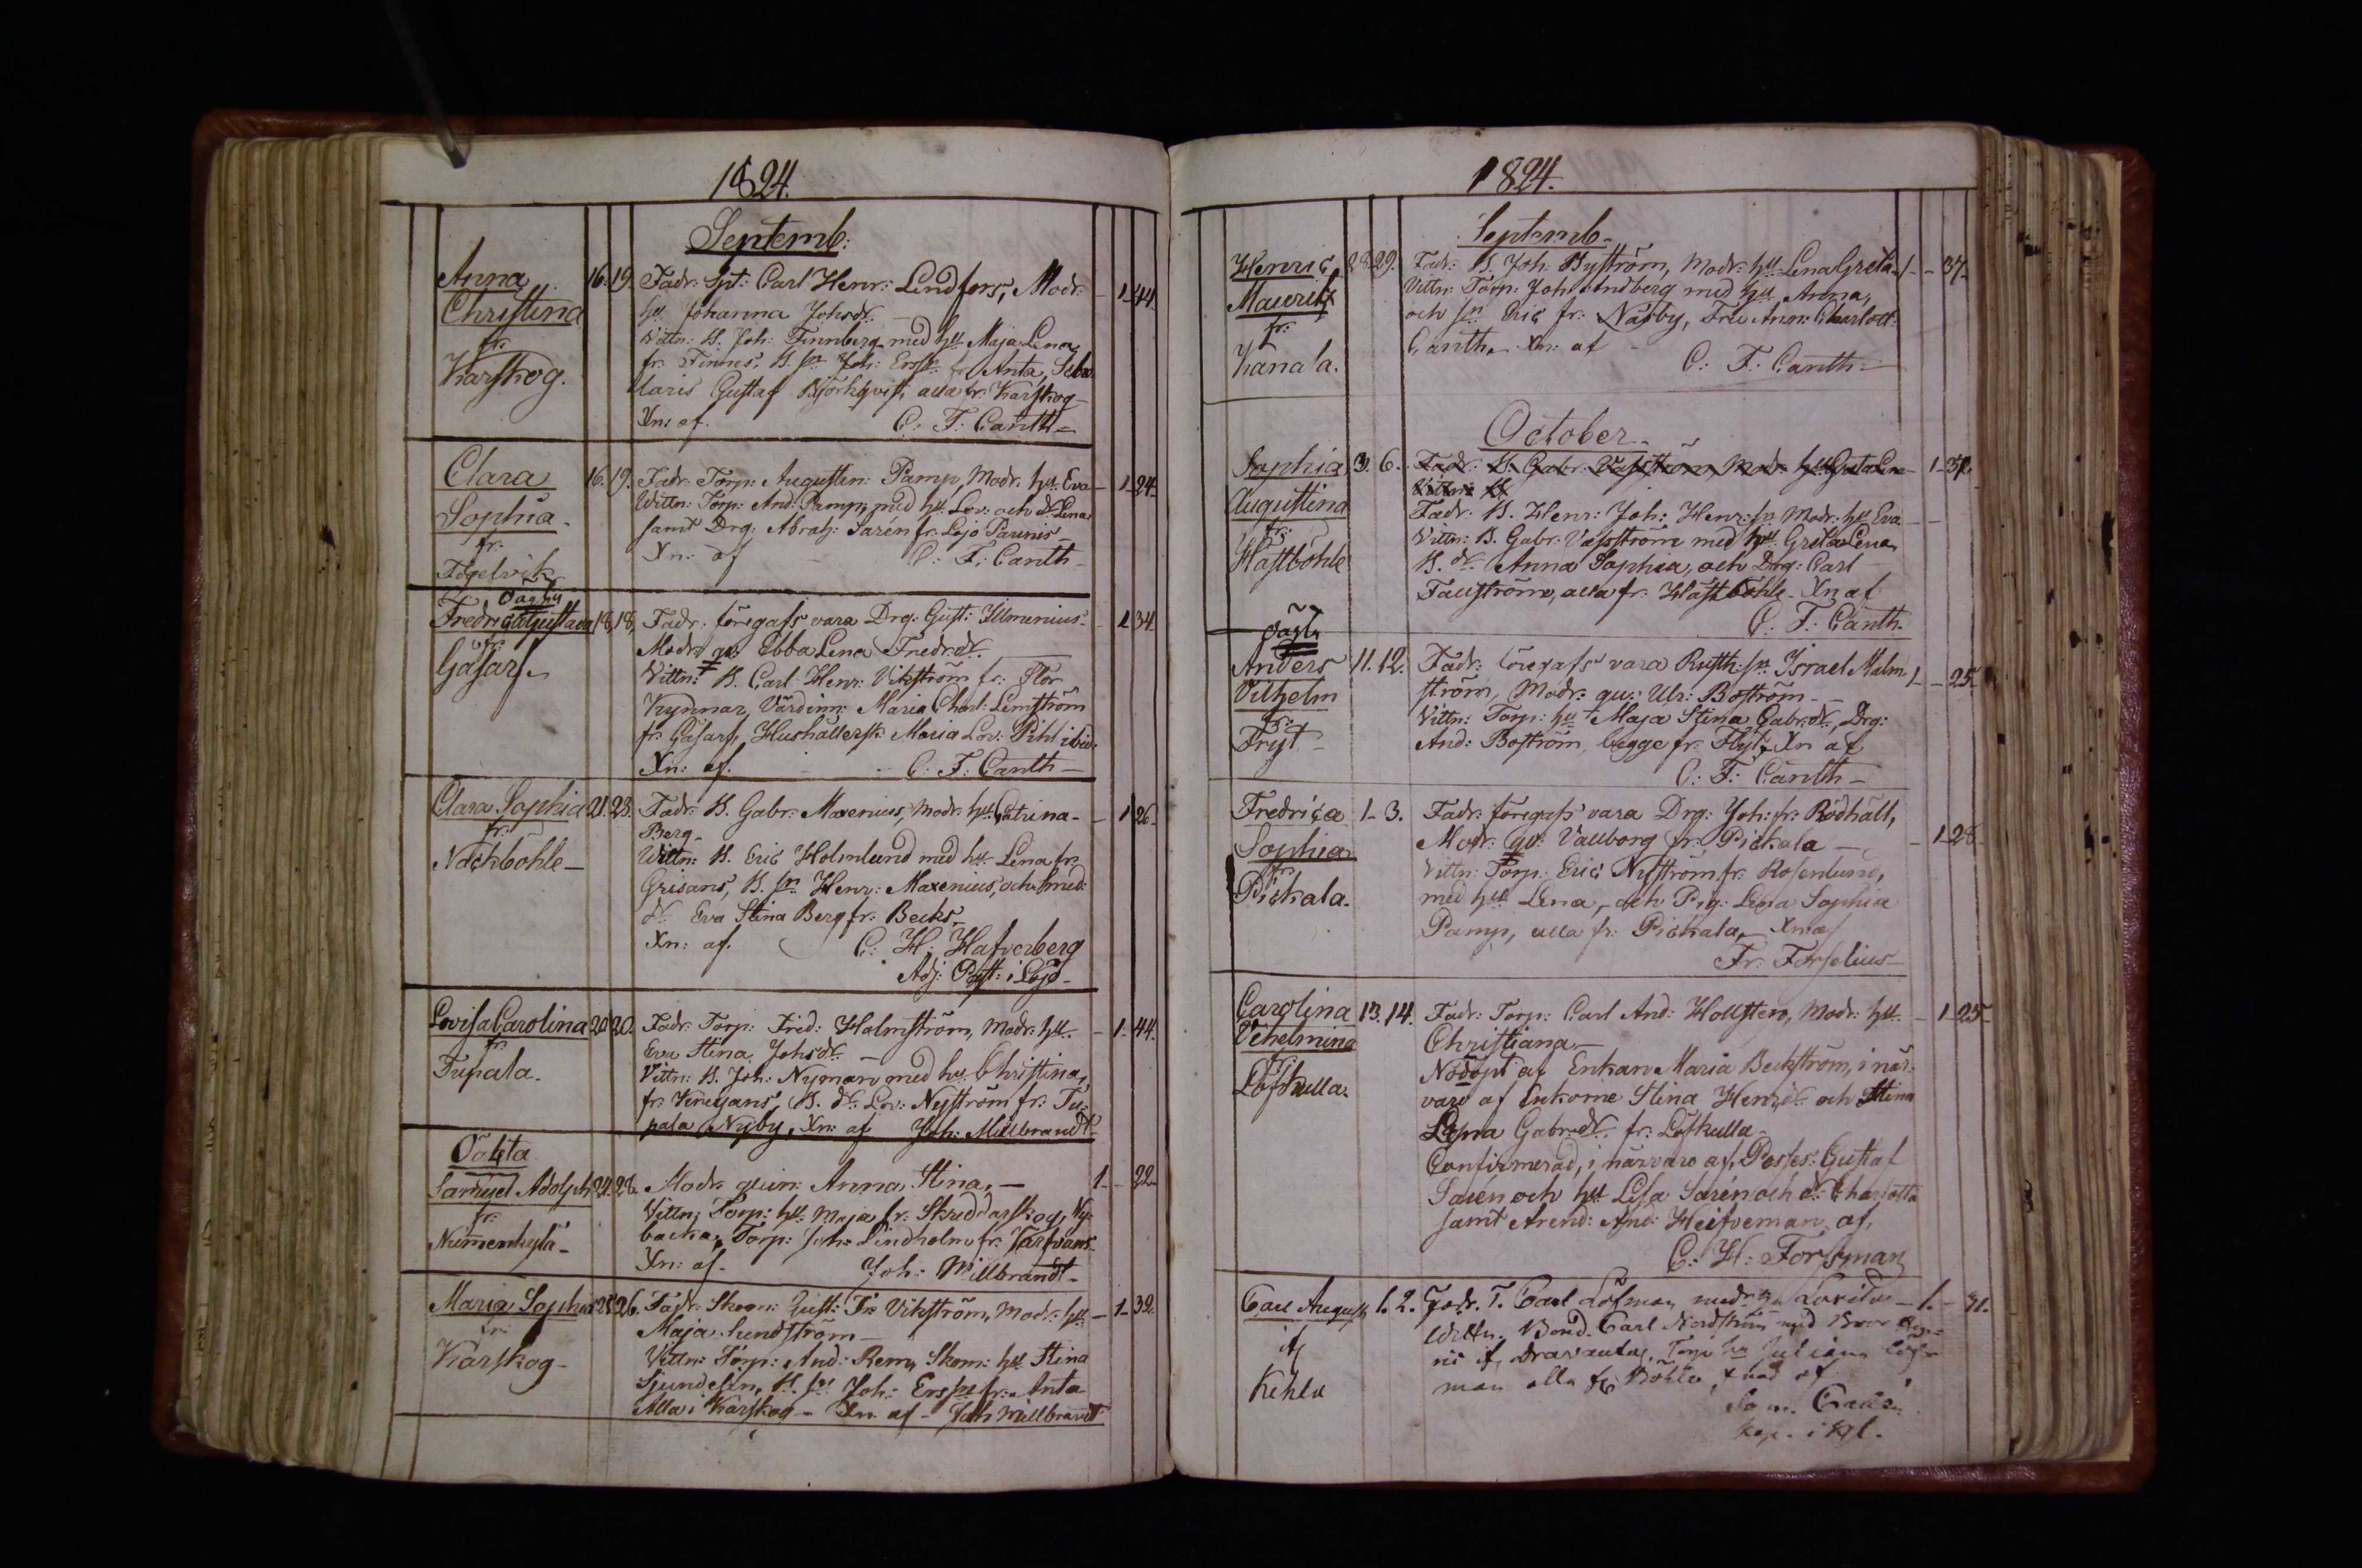 1824.
Septemb:
Anna 16. 19. Fadr. Spt: Carl Henr: Lindfors, Modr: - 1 44
Christina hu Johanna Johsdr.
fr. Vittn: B. Joh: Finnberg med hu Maja Lena,
Karskog. fr. Finnes, B. sn Joh: Ersn fr Anta,
Gustaf Björkqvist, alla fr. Karskog
Xn: af. C: F: Canth
Clara 16. 19. Fadr. Torp: Augustin: Pamp, Modr. hu Eva 1 24
Sophia. Wittn: Torp: And: Pamp, med hu Lov: och dr Lena
fr. samt Drg: Abrah: Sarén fr. Lojo Parinis
Fogelvik Xn: af C: F: Canth
Oägta
Fredric Gustava 18. 18. Fadr: föregafs vara Drg: Gust: Illmenius 1 34
fr. Modr qv: Ebba Lena Fredrdr.
Gåsars Vittn: B. Carl Henr: Vikström fr. Stor
Kyrmar, Värdinn: Maria Charl: Lemström
fr. Gåsars, Hushållersk: Maria Lov: Pihl ibid:
Xn: af. C: F: Canth
Clara Sophia 21. 23. Fadr: B. Gabr: Maxenius, Modr: hu Catrina 1 26
fr. Berg
Nackbohle Wittn: B. Eric Holmlund med hu Lena fr.
Grisans, B. sn Henr: Maxenius, och Smed:
dr Eva Stina Berg fr. Becks
Xn: af. C: H: Hafverberg
Adj: Past: i Lojo
Lovisa Carolina 20 20. Fadr. Torp: Fred: Holmström, Modr: hu - 1 44.
fr. Eva Stina Johsdr.
Tupala. Vittn: B. Joh: Nyman med hu Christina,
fr. B. dr. Lov: Nyström fr. Tu-
pala Nyby, Xn: af Joh: Millbrandt
Oäkta
Samuel Adolph 24. 28. Modr. quin: Anna Stina, - 1 - 22
fr. Vittn: Torp: hu Maja fr. Skreddarskog, Ny-
Nummenkylä backa, Torp: Joh: Lindholm fr.
Xn: af. Joh: Millbrandt
Maria Sophia 25 26. Fadr. Skom: Gust: Fr: Vikström, Modr: hu - 1 - 32
fr. Maja Lundström
Karskog Vittn: Torp: And: Rem, Skom: hu Stina
B. sn Joh: Ersn fr. Anta
Alla i Karskog - Xn. af - Joh Millbrandt
1824.
Septemb
Henric 28. 29. Fadr: B. Joh: Byström, Modr: hu Lena Greta 1 - 37
Mauritz Vittn: Torp: Joh: Andberg med hu Anna,
fr. och sn Eric fr. Näsby, Fru Ann: Charlott:
Kanala. Canth, Xn: af
C: F: Canth
October
Sophia 3. 6. Fadr: B. Gabr: Vasström, Modr: hu Greta Lena 1 - 37.
Augustina Vittn: B
fr. Fadr: B. Henr: Joh: Henr: sn Modr: hu Eva
Hästbohle Vittn: B. Gabr: Vasström med hu Greta Lena,
B. dr Anna Sophia, och Drg: Carl
alla fr. Hästbohle. Xn af
C: F: Canth.
Oägta
Anders 11. 12. Fadr: föregafs vara Rusth: sn Israel Malm- 1 - 25
Vilhelm ström, Modr: qu: Ulr: Boström
fr. Vittn: Torp: hu Maja Stina Gabr:dr, Drg:
Flyt And: Boström, begge fr. Flyt, Xn af
C: F: Canth
Fredrica 1. 3. Fadr: föregafs vara Drg: Joh: fr. Rödhäll,
Sophia Modr: qv: Vallborg fr. Pickala 1 - 28
fr. Vittn: Torp: Eric Nyström fr. Rosenlund,
Pickala. med hu Lena, och Pig: Lena Sophia
Pamp, alla fr. Pickala, Xn af
Fr: Forselius
Carolina 13. 14. Fadr: Torp: Carl And: Hollsten, Modr: hu - 1 25
Vehelmina Christiana
fr. Nödöpt af Enkan Maria Beckström, i när-
Löfkulla. varo af Enkorne Stina Henr:dr och Stina
Lena Gabr:dr fr. Löfkulla
Confirmerad, i närvaro af, Posses: Gustaf
Sarén och hu Lisa Sarén och dr Charlotta
samt Arend: And: Heitveman, af,
C: H: Forsman
Carl August 1. 2. Fadr. T. Carl Löfman modr. hu Lovisa 1. - 31.
if Wittn. Bond. Carl Nordström med Bror
Kehla Torp hu Juliana Löf-
man alla
Sam.
kap. i Kyl.